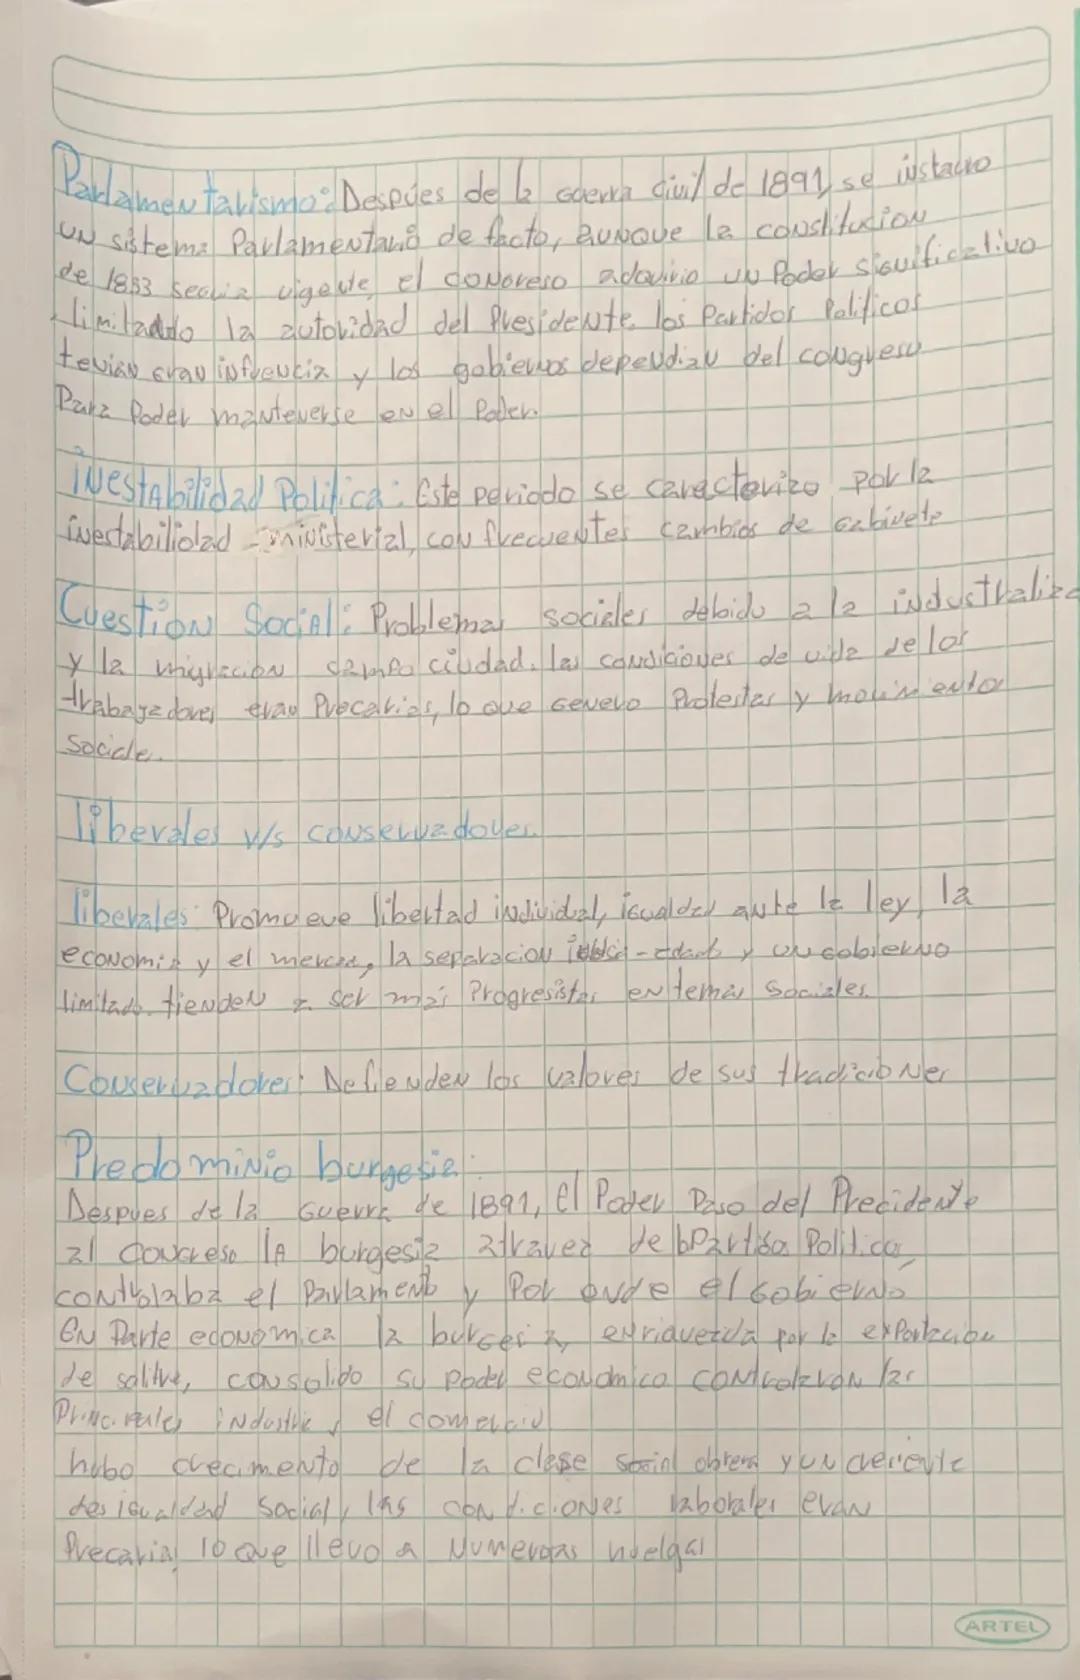 Parlamentarismo: Despúes de la guerra civil de 1891, se instauro
un sistema Parlamentario de facto, aunque la constitucion
de 1833 seguia vigente, el congreso adquirio un Poder significativo
limitando la autoridad del Presidente. los Partidos Politicos
tenian gran influencia y los gobiernos dependian del congreso
Para Poder mantenerse en el Poder.
inestabilidad Politica: Este periodo se caracterizo por la
inestabilidad ministerial, con frecuentes cambios de gabinete
Cuestion Social: Problemas sociales debido a la industraliza
y la migracion campo ciudad. las condiciones de vida de los
trabajadores eran Precarias, lo que genero Protestas y movimientos
sociale.
liberales v/s conservadores.
liberales: Promueve libertad individual, igualdad ante la ley, la
economia y el mercado, la separacion y un gobierno
limitado. tienden a ser más Progresistas en temas Sociales.
Conservadores: Defienden los valores de sus tradiciones
Predominio burgesia:
Despues de la Guerra de 1891, el Poder Paso del Precidente
al congreso la burgesia atravez de Partido Politico,
controlaba el Parlamento y Por ende el Gobierno
En Parte economica la burgesia, enriquecida por la exportacion
de salitre, consolido su poder economico controlaron las
Principales industria, el comercio
hubo crecimento de la clase social obrera y un creciente
desigualdad social, las condiciones laborales eran
Precarias lo que llevo a numerosas huelgas
ARTEL